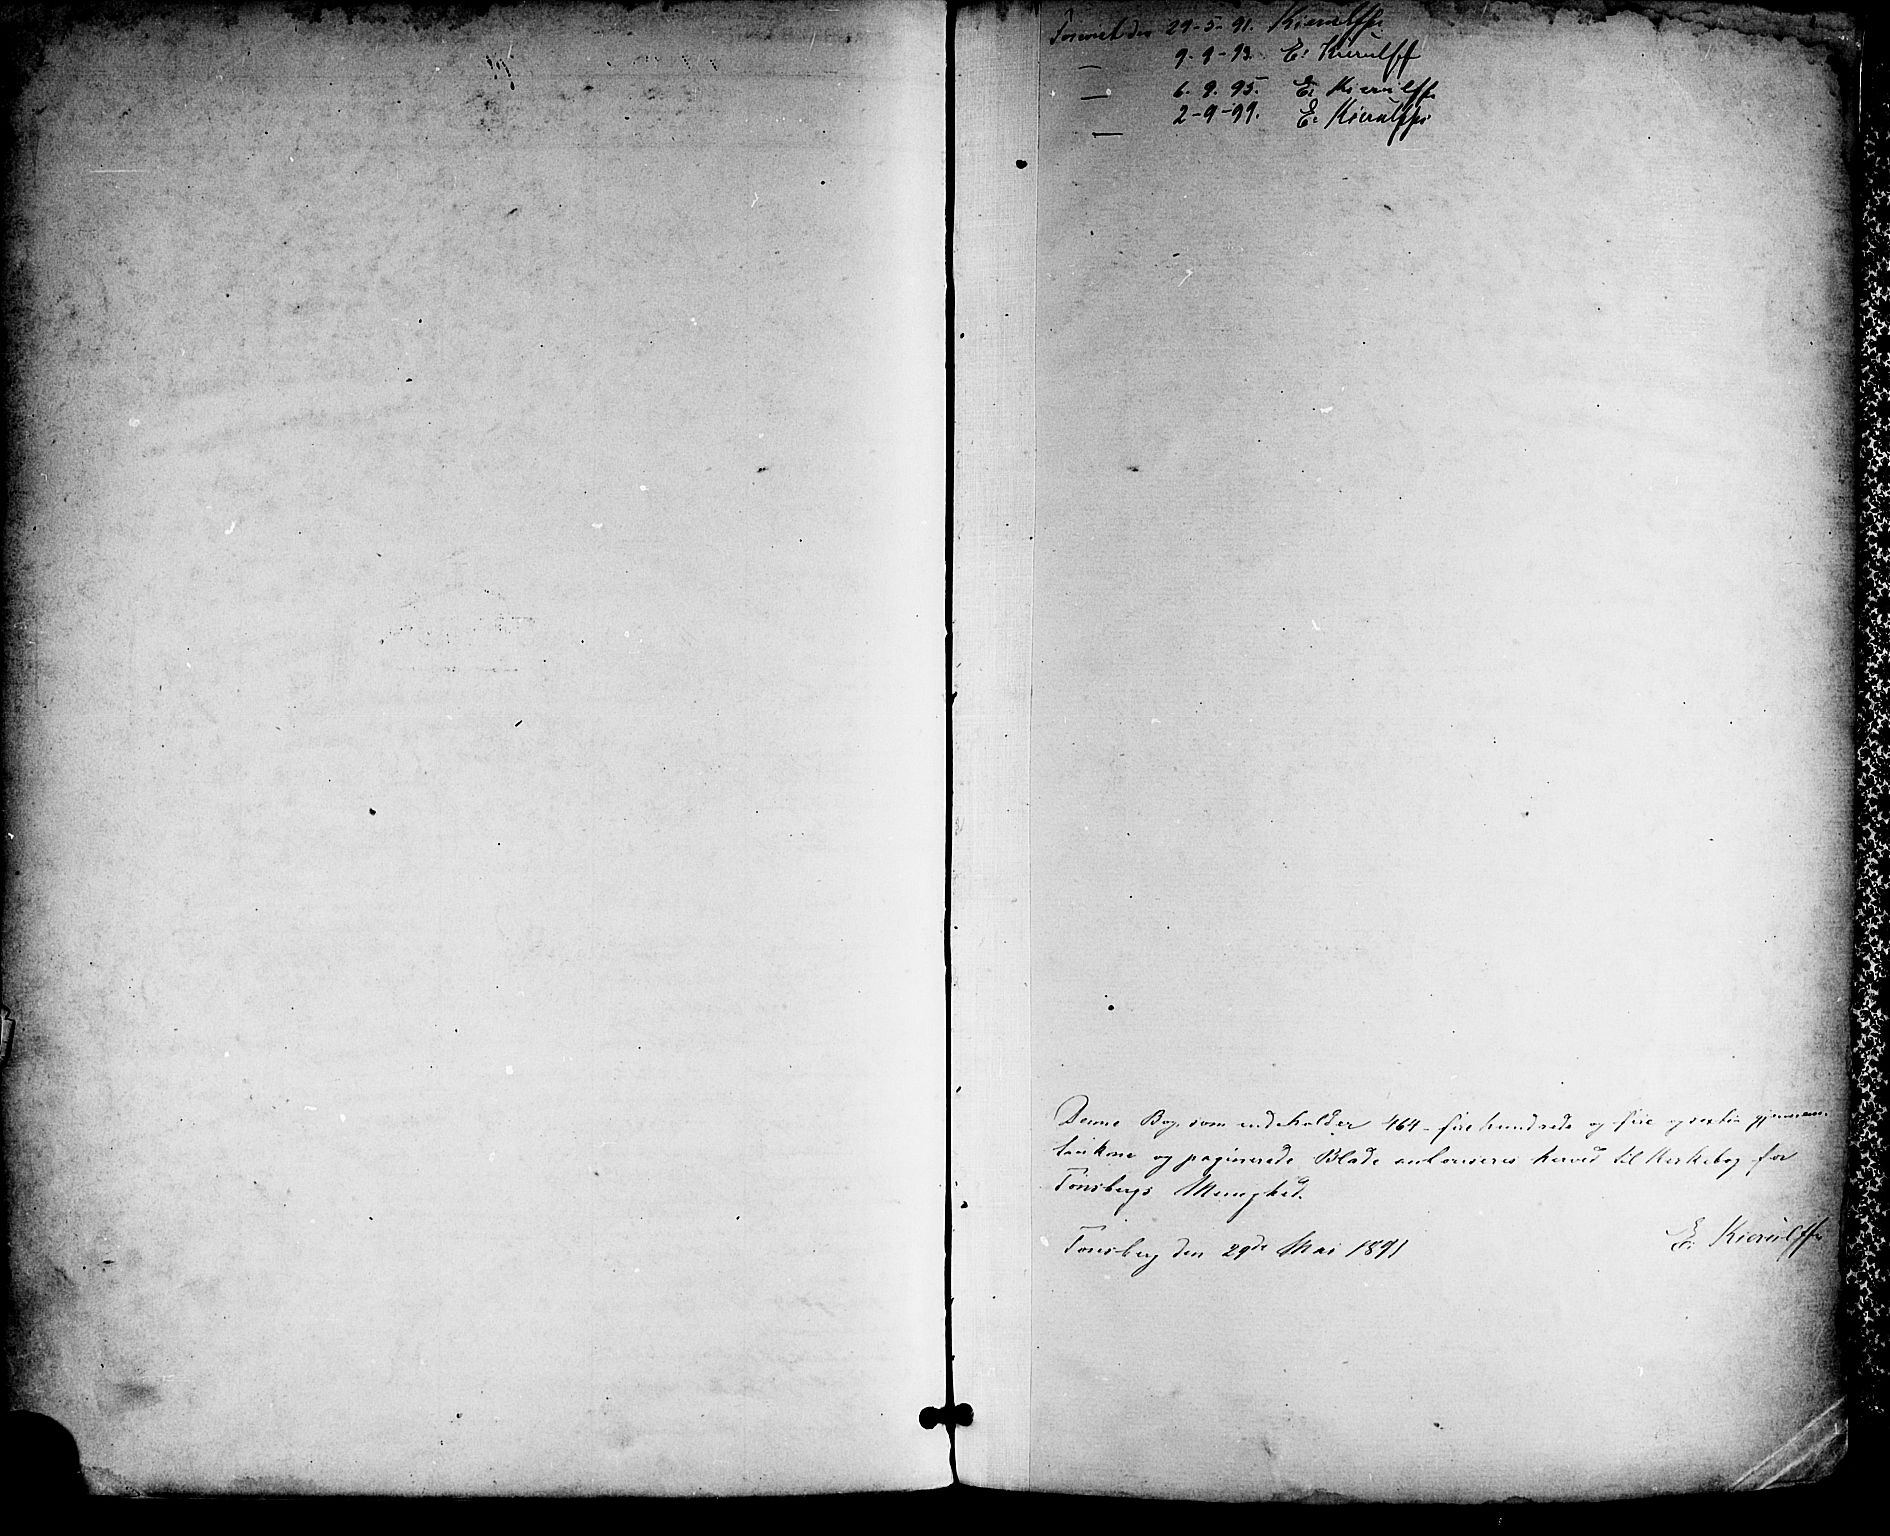 29-5-91. Kierulff
— 9-9-93. E. Kierulff
— 6-9-95. E. Kierulff
— 2-9-97. E. Kierulff
Denne Bog, som indeholder 464 - fire hundrede og fire og sexti gjennem-
trukne og paginerede Blade autoriseres herved til Kirkebog for
Tønsbergs Menighed.
Tønsberg den 29de Mai 1891
E. Kierulff